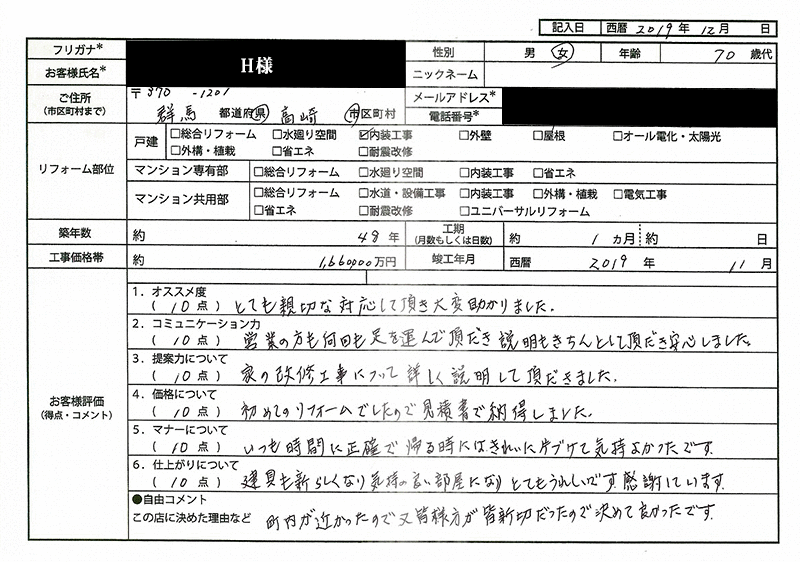 記入日 西暦 2019 年 12 月 日
フリガナ*
お客様氏名* H様
性別 男 女 年齢 70 歳代
ニックネーム
ご住所 (市区町村まで) 〒370-1201
群馬 都道府県 高崎 市区町村
メールアドレス*
電話番号*
リフォーム部位
戸建 □総合リフォーム □水廻り空間 ☑内装工事 □外壁 □屋根 □オール電化・太陽光
□外構・植栽 □省エネ □耐震改修
マンション専有部 □総合リフォーム □水廻り空間 □内装工事 □省エネ
マンション共用部 □総合リフォーム □水道・設備工事 □内装工事 □外構・植栽 □電気工事
□省エネ □耐震改修 □ユニバーサルリフォーム
築年数 約 48 年 工期 (月数もしくは日数) 約 1 カ月 約 日
工事価格帯 約 1,660,000 万円 竣工年月 西暦 2019 年 11 月
お客様評価 (得点・コメント)
1．オススメ度
( 10 点 ) とても親切な対応して頂き大変助かりました。
2．コミュニケーション力
( 10 点 ) 営業の方も何回も足を運んで頂だき説明もきちんとして頂だき安心しました。
3．提案力について
( 10 点 ) 家の改修工事について詳しく説明して頂だきました。
4．価格について
( 10 点 ) 初めてのリフォームでしたので見積書で納得しました。
5．マナーについて
( 10 点 ) いつも時間に正確で帰る時にはきれいに片づけて気持よかったです。
6．仕上がりについて
( 10 点 ) 建具も新らしくなり気持の良い部屋になりとてもうれしいです感謝しています。
●自由コメント
この店に決めた理由など 町内が近かったので又皆様方が皆親切だったので決めて良かったです。